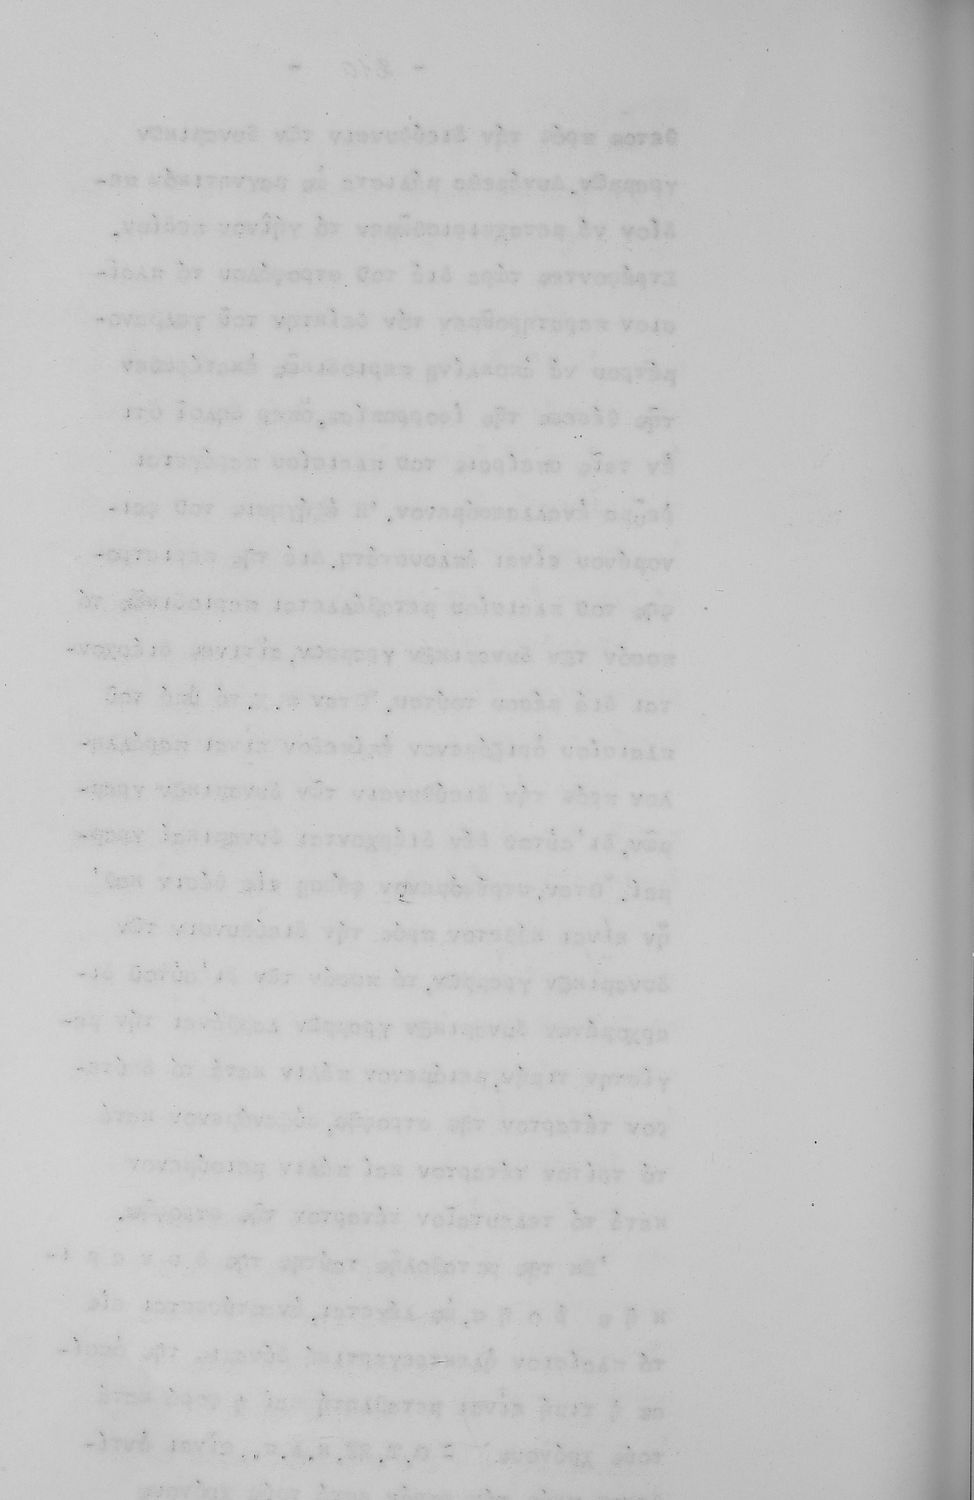 - 210 -
θετος πρός τήν διεύθυνσιν τῶν δυναμικῶν
γραμμῶν, δυνάμεθα μάλιστα ὡς μαγνητικόν πε-
δίον νά μεταχειρισθῶμεν τό γήϊνον πεδίον.
Στρέφοντες τώρα διά τοῦ στροφάλου τό πλαί-
σιον παρατηροῦμεν τόν δείκτην τοῦ γαλβανο-
μέτρου νά ἀποκλίνῃ περιοδικῶς ἑκατέρωθεν
τῆς θέσεως τῆς ἰσορροπίας, ὅπερ δηλοῖ ὅτι
ἐν ταῖς σπείραις τοῦ πλαισίου παράγεται
ρεῦμα ἐναλλασσόμενον. Ἡ ἐξήγησις τοῦ φαι-
νομένου εἶναι ἁπλουστάτη. διά τῆς περιστρο-
φῆς τοῦ πλαισίου μεταβάλλεται περιοδικῶς τό
ποσόν τῶν δυναμικῶν γραμμῶν, αἵτινες διέρχον-
ται διά μέσου τούτου. Ὅταν π.χ. τό ὑπό τοῦ
πλαισίου ὁριζόμενον ἐπίπεδον εἶναι παράλλη-
λον πρός τήν διεύθυνσιν τῶν δυναμικῶν γραμ-
μῶν, δι' αὐτοῦ δέν διέρχονται δυναμικαί γραμ-
μαί. Ὅταν, στρεφόμενον φθάσῃ εἰς θέσιν καθ'
ἥν εἶναι κάθετον πρός τήν διεύθυνσιν τῶν
δυναμικῶν γραμμῶν, τό ποσόν τῶν δι' αὐτοῦ δι-
ερχομένων δυναμικῶν γραμμῶν λαμβάνει τήν με-
γίστην τιμήν, μειούμενον πάλιν κατά τό δεύτε-
ρον τέταρτον τῆς στροφῆς, αὐξανόμενον κατά
τό τρίτον τέταρτον καί πάλιν μειούμενον
κατά τό τελευταῖον τέταρτον τῆς στροφῆς.
Ἐκ τῆς μεταβολῆς ταύτης τῆς δ υ ν α μ ι-
κ ῆ ς ῥ ο ῆ ς, ὡς λέγεται, ἀναπτύσσεται εἰς
τό πλαίσιον ἠλεκτρεγερτική δύναμις τῆς ὁποί-
ας ἡ τιμή εἶναι μεταβλητή καί ἡ φορά κατά
τούς χρόνους